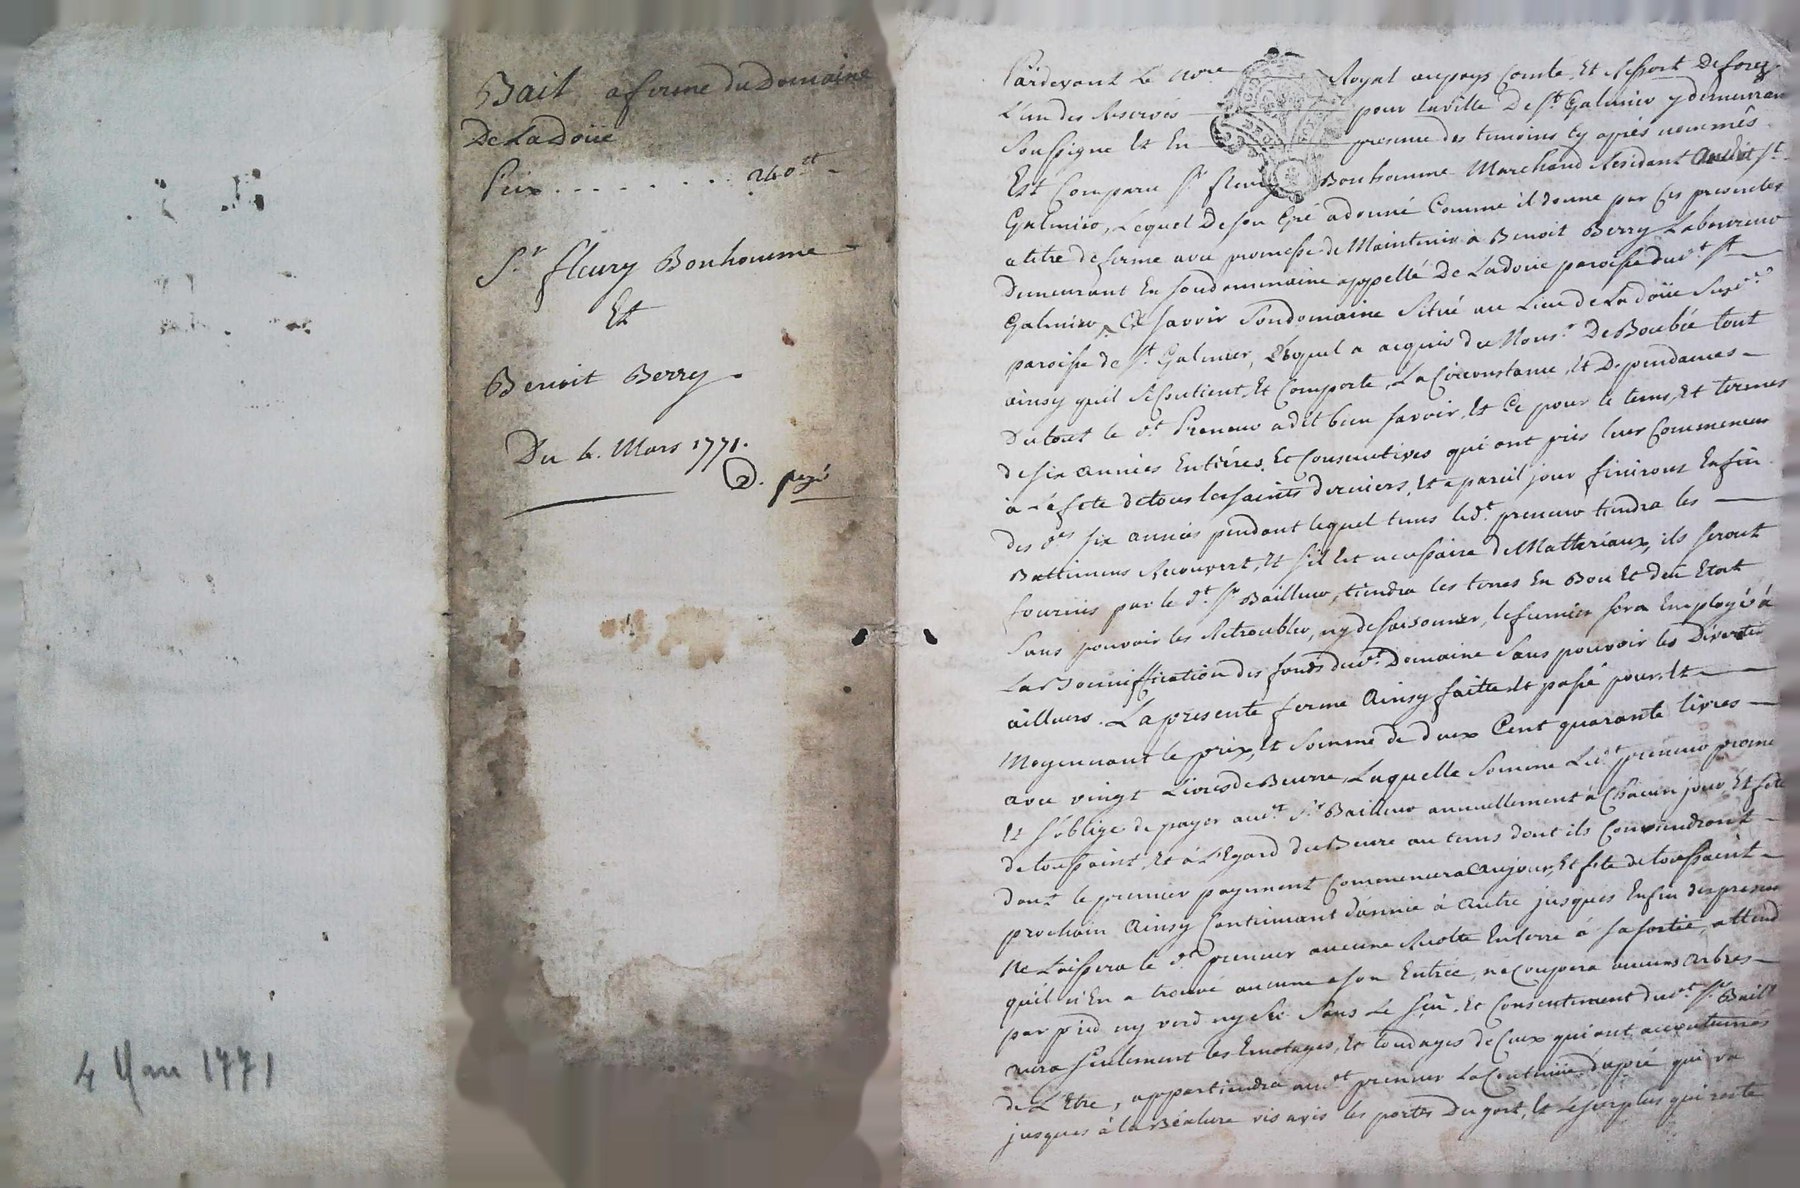 Bail a ferme du Domaine
De La Doüe
Prix . . . . . . . . 240 tt
Sr. fleury Bonhomme
Et
Benoit Berry.
Du 4. Mars 1771.
4 Mars 1771
Pardevant Le Nore Royal au pays Comté, Et Ressort De forez
L'un des Reservés pour la ville De St. Galmier y demeurant
Soussigné Et En presence des temoins cy aprés nommés
Est Comparu Sr. fleury Bonhomme Marchand Residant audit St.
Galmier, Lequel De son Gré a donné Comme il donne par Ces presentes
a titre de ferme avec promesse de Maintenir à Benoit Berry Laboureur
Demeurant En son dommaine appellé De La doüe paroisse dud. St
Galmier, savoir Son domaine Situé au Lieu de La doüe Susd.
paroisse de St. Galmier, Lequel a acquis de Mons. De Boubée tout
ainsy quil Se Contient, Et Comporte, La Circonstance, Et Dependances
Du tout le dt. Preneur a dit bien savoir, Et Ce pour le tems, Et termes
de six années Entiéres, Et Consecutives qui ont pris leur Commencem
à La fete de tous les saints derniers, Et a pareil jour finiront Enfin
des des six années pendant lequel tems led. preneur tiendra les
Battimens Recouvert, Et s'il Est necessaire de Matteriaux, ils seront
fournis par le dt. Sr Bailleur, tiendra les terres En Bon Et deu Etat
Sans pouvoir les Retroubler, ny desaisonner, le fumier sera Employé à
La Bonniffication des fonds dud. Domaine Sans pouvoir les Divertir
ailleurs. La presente ferme Ainsy faitte Et passé pour, Et
Moyennant le prix, Et Somme de deux Cent quarante livres
avec vingt Livres de Beurre, Laquelle Somme Led. preneur promet
Et s'oblige de payer aud. Sr Bailleur annuellement à Chacun jour, Et fete
de toussaint, Et à L'Egard du Beure au tems dont ils Conviendront
dont le premier payement Commencera Au jour, Et fete de toussaint
prochain Ainsy Continuant d'année à Autre jusques Enfin des presentes
Ne Laissera le dt. preneur aucune Recolte En terre à sa sortie, attendu
qu'il n'En a trouvé aucune a son Entrée, ne Coupera aucuns arbres
par pied ny verd ny sec Sans Le sçu, Et Consentement dud. Sr. Baill
aura seulement les Emotages, Et tondages de Ceux qui ont accoutumés
de L'Etre, appartiendra aud. preneur La du pré qui va
jusques à la Béalure vis avis les portes Du gort, Et Le surplus qui reste